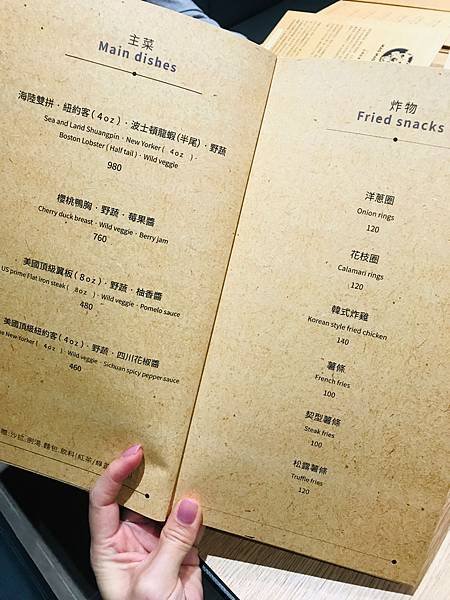 主菜
Main dishes
海陸雙拼．紐約客(4oz)．波士頓龍蝦(半尾)．野蔬
Sea and Land Shuangpin · New Yorker ( 4oz ) ·
Boston Lobster ( Half tail ) · Wild veggie
980
櫻桃鴨胸．野蔬．莓果醬
Cherry duck breast · Wild veggie · Berry jam
760
美國頂級翼板(8oz)．野蔬．柚香醬
US prime Flat iron steak ( 8oz ) · Wild veggie · Pomelo sauce
480
美國頂級紐約客(4oz)．野蔬．四川花椒醬
New Yorker ( 4oz ) · Wild veggie · Sichuan spicy pepper sauce
460
沙拉.例湯.麵包.飲料(紅茶/
炸物
Fried snacks
洋蔥圈
Onion rings
120
花枝圈
Calamari rings
120
韓式炸雞
Korean style fried chicken
140
薯條
French fries
100
契型薯條
Steak fries
100
松露薯條
Truffle fries
120